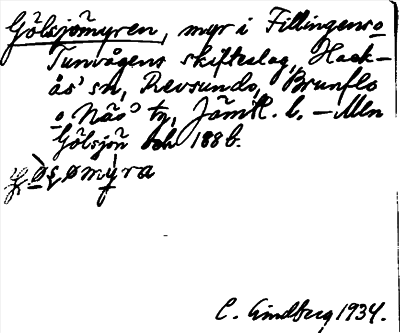 Gölsjömyren, myr i Fillingens o
Tunvågens skifteslag, Hack-
ås' sn, Revsunds, Brunflo
o. Näs' tg, Jämtl. l. – Mln
Gölsjön och 188 b.
C. Lindberg 1934.